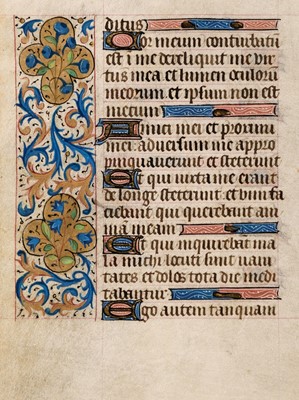 ditus
Cor meum conturbatū
est i me dereliquit me vir
tus mea et lumen oculoru
meorum et ipsum non est
mecum
Amici mei et proximi
mei: adversum me appro
pinquaverunt et steterunt
Et qui iuxta me erant
de longe steterunt et vim fa
ciebant qui querebant ani
mā meam
Et qui inquirebāt ma
la michi locuti sunt vani
tates et dolos tota die medi
tabantur
Ego autem tanquam